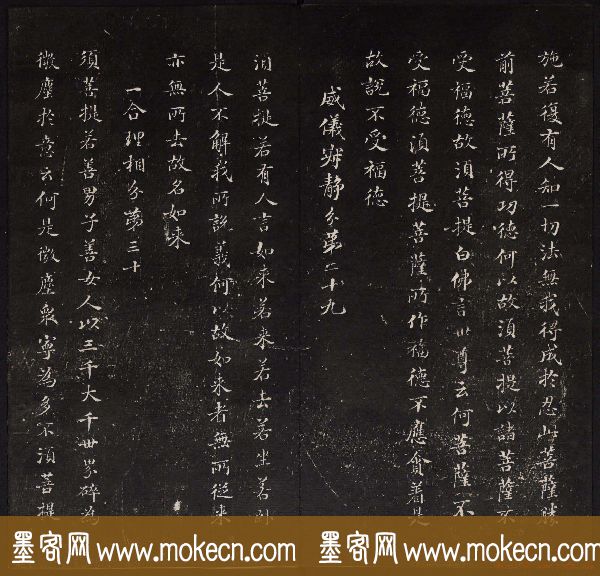 施若復有人知一切法無我得成於忍此菩薩勝
前菩薩所得功德何以故須菩提以諸菩薩不
受福德故須菩提白佛言世尊云何菩薩不
受福德須菩提菩薩所作福德不應貪著是
故說不受福德
威儀寂静分第二十九
須菩提若有人言如来若来若去若坐若卧
是人不解我所說義何以故如来者無所從来
亦無所去故名如来
一合理相分第三十
須菩提若善男子善女人以三千大千世界碎為
微塵於意云何是微塵衆寧為多不須菩提
墨客网 www.mokecn.com 墨客网 www.mokecn.com